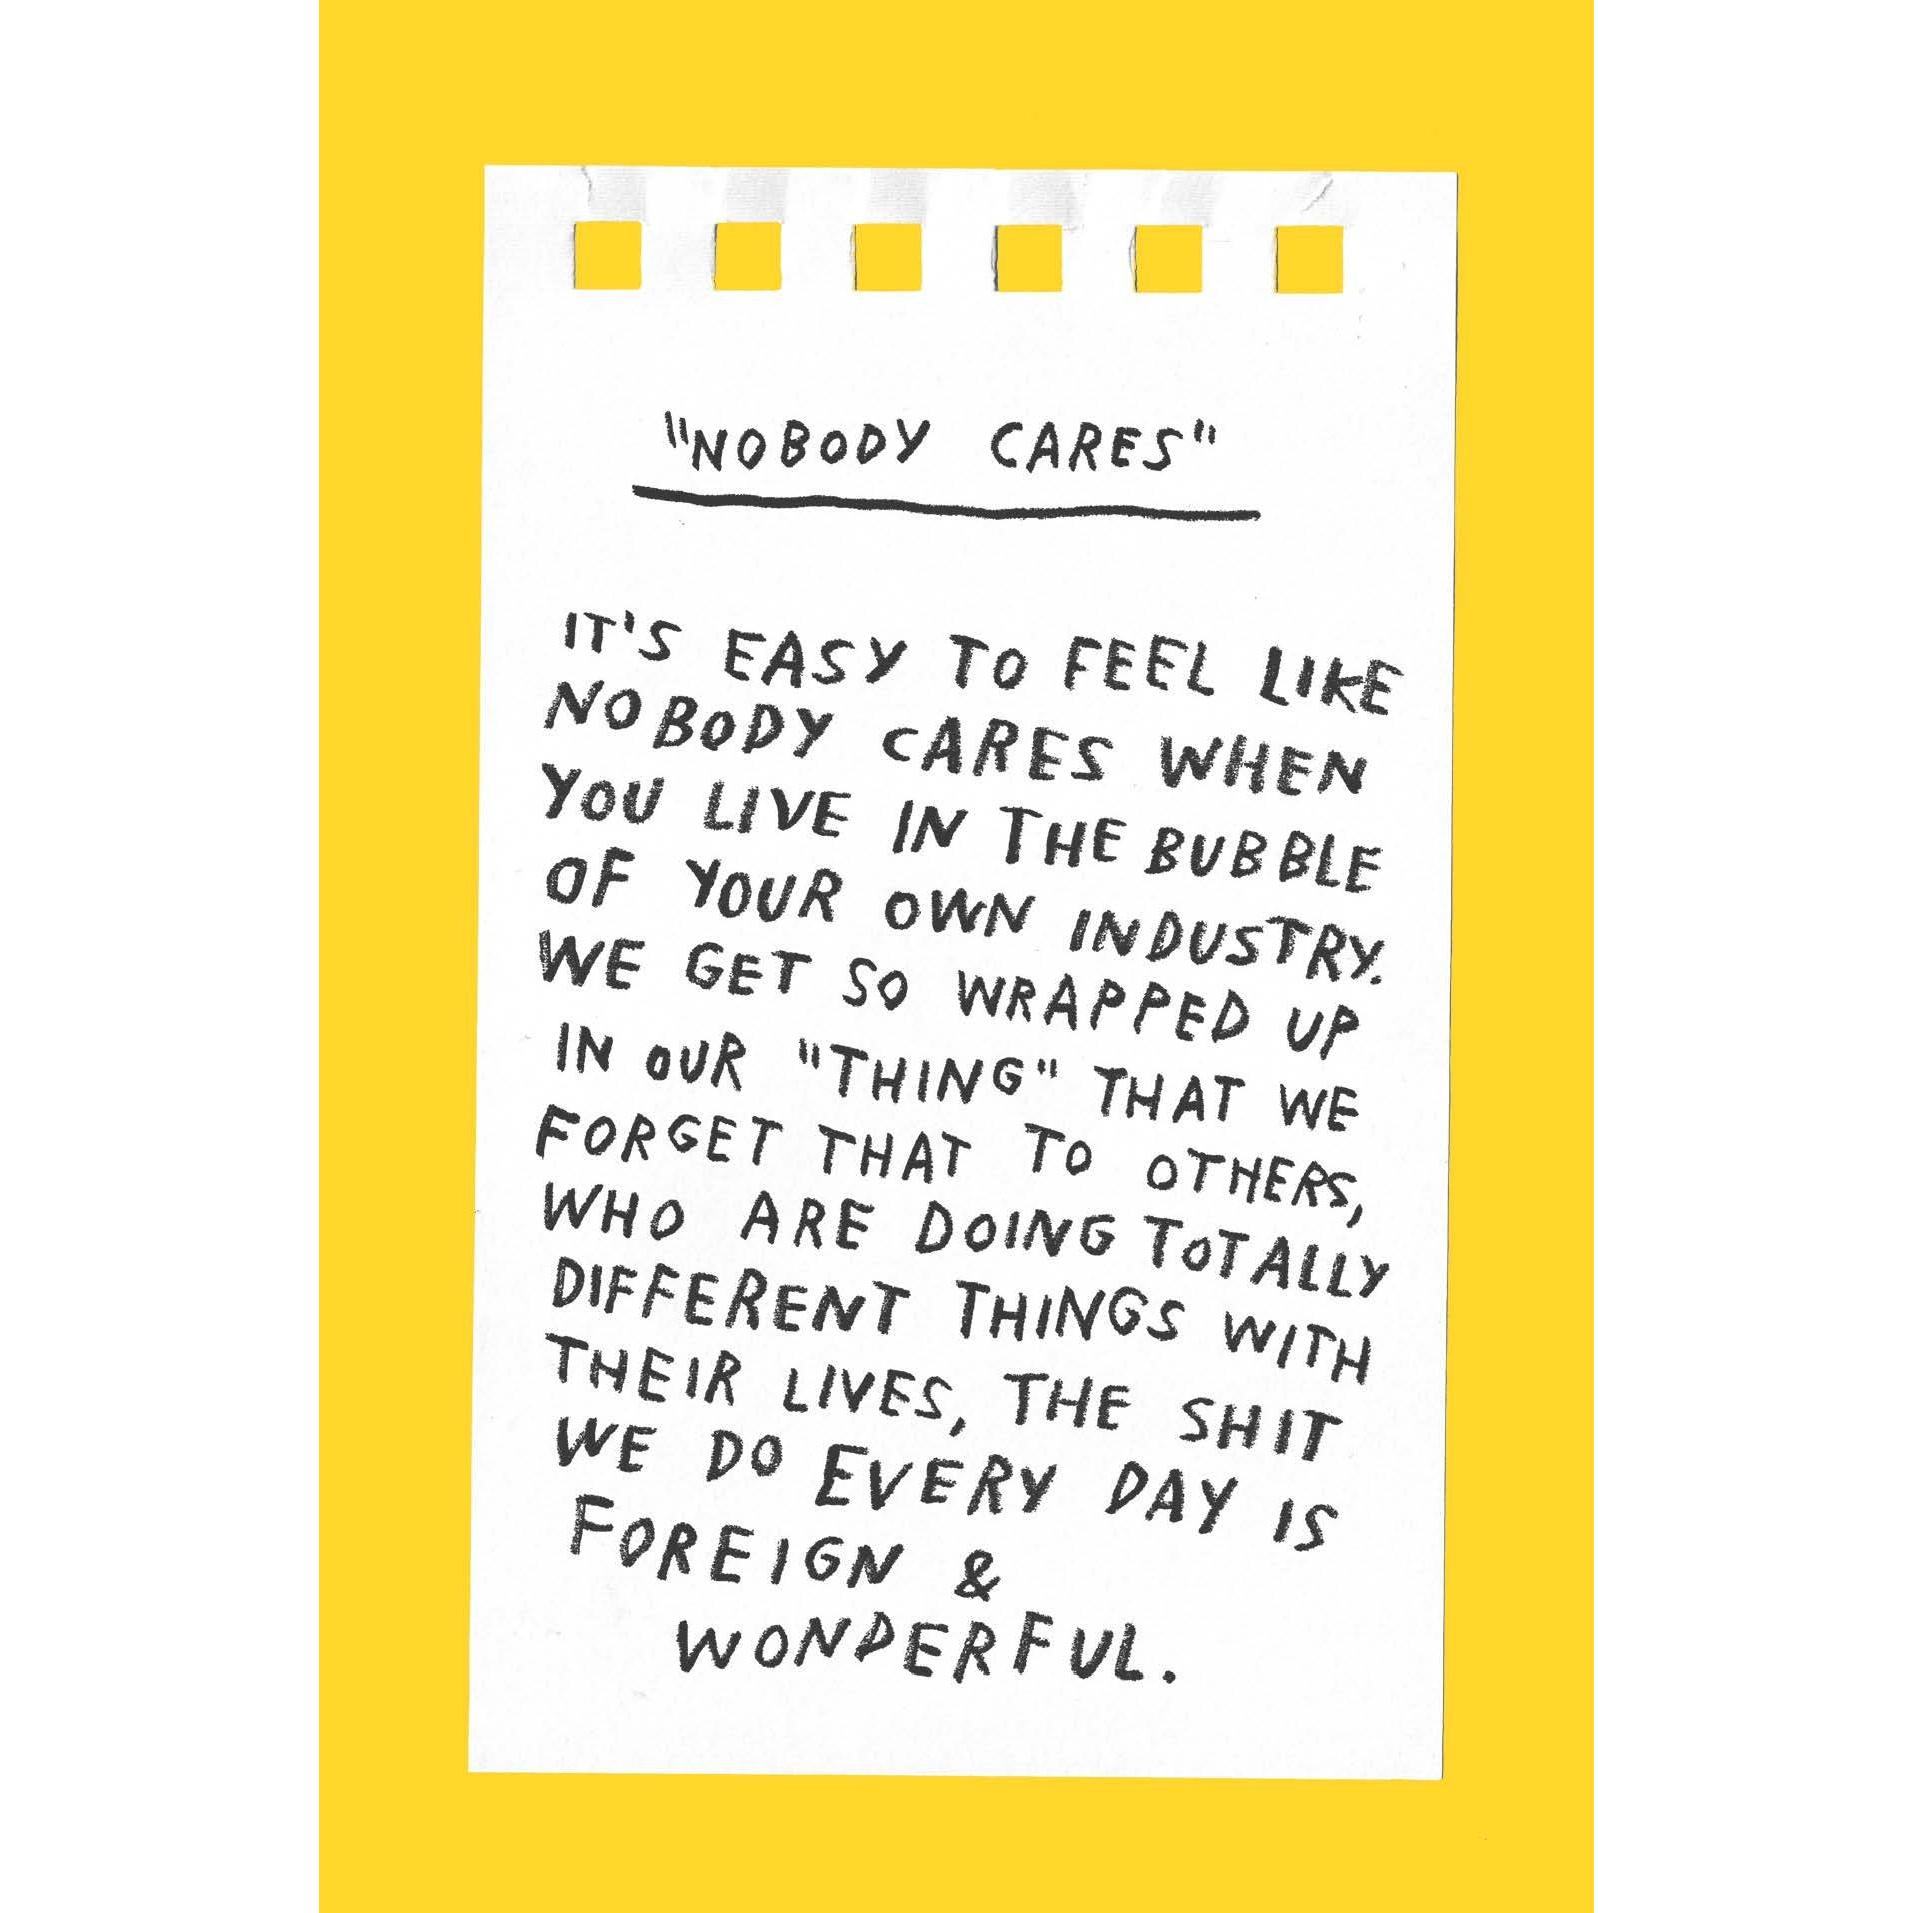 "NOBODY CARES"
IT'S EASY TO FEEL LIKE
NOBODY CARES WHEN
YOU LIVE IN THE BUBBLE
OF YOUR OWN INDUSTRY.
WE GET SO WRAPPED UP
IN OUR "THING" THAT WE
FORGET THAT TO OTHERS,
WHO ARE DOING TOTALLY
DIFFERENT THINGS WITH
THEIR LIVES, THE SHIT
WE DO EVERY DAY IS
FOREIGN &
WONDERFUL.